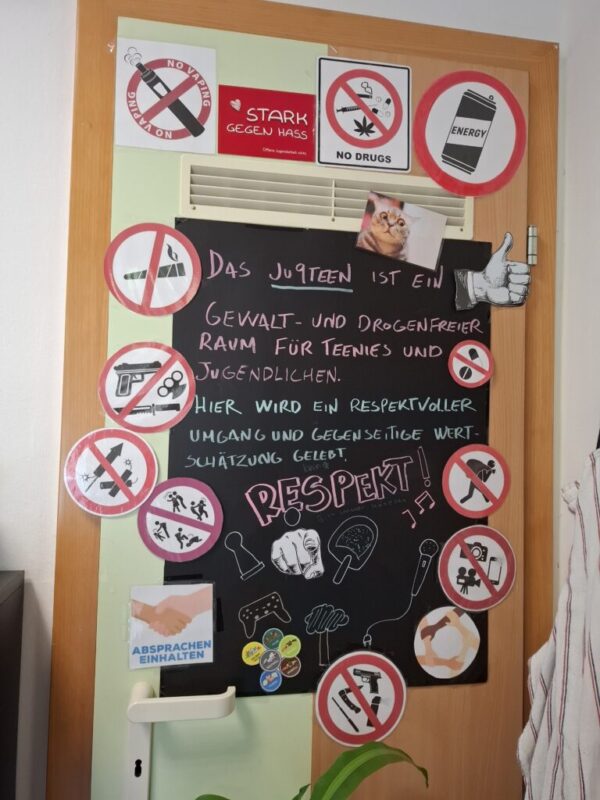 NO VAPING
NO VAPING
STARK
GEGEN HASS
Offene Jugendarbeit
NO DRUGS
ENERGY
DAS JU9TEEN IST EIN
GEWALT- UND DROGENFREIER
RAUM FÜR TEENIES UND
JUGENDLICHEN.
HIER WIRD EIN RESPEKTVOLLER
UMGANG UND GEGENSEITIGE WERT-
SCHÄTZUNG GELEBT.
RESPEKT!
ABSPRACHEN
EINHALTEN